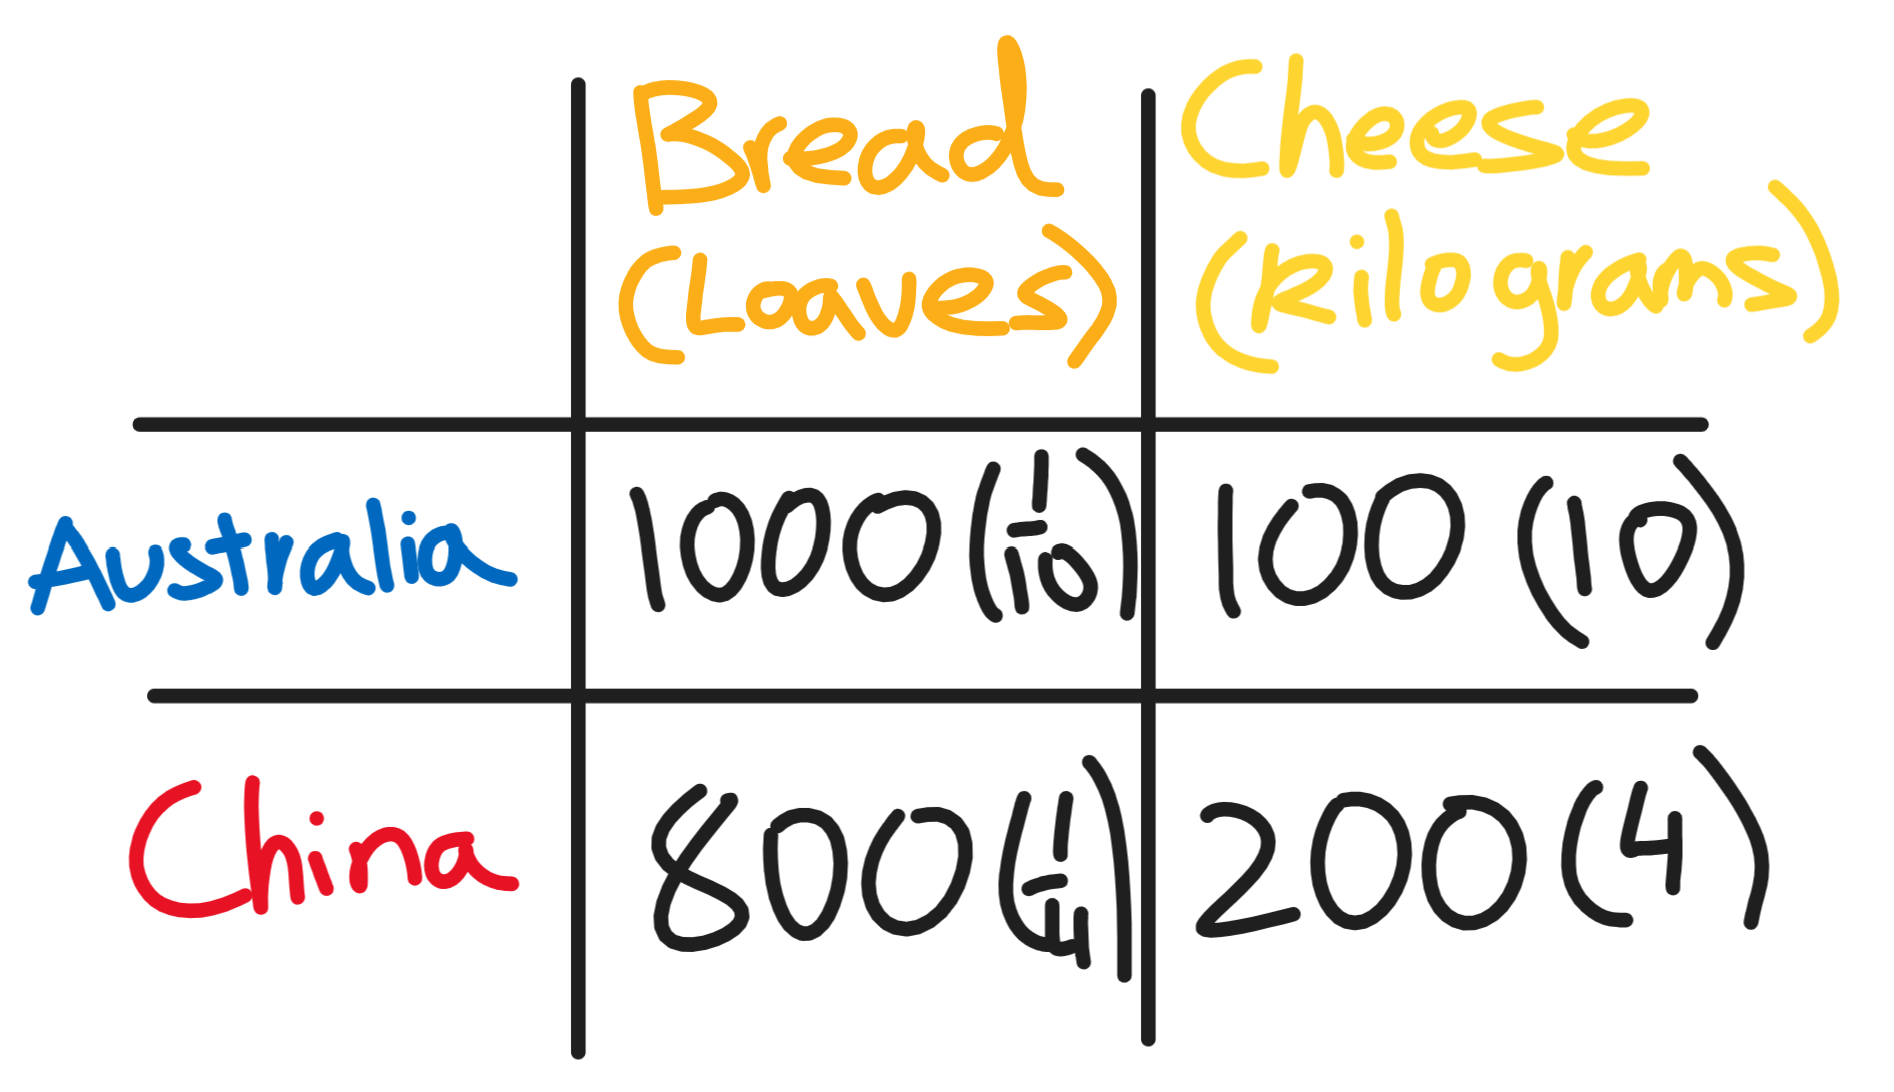 Bread
(Loaves)
Cheese
(Kilograms)
Australia
1000 (1/10)
100 (10)
China
800 (1/4)
200 (4)